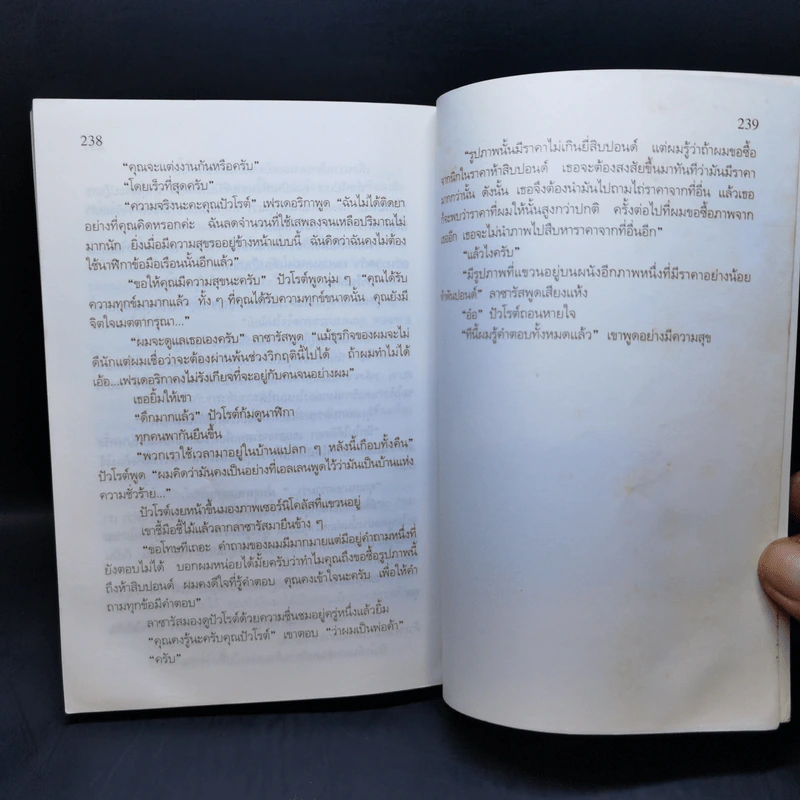 238
“คุณจะแต่งงานกันหรือครับ”
“โดยเร็วที่สุดครับ”
“ความจริงนะคะคุณปัวโรต์” เฟรเดอริกาพูด “ฉันไม่ได้ติดยา
อย่างที่คุณคิดหรอกค่ะ ฉันลดจำนวนที่ใช้เสพลงจนเหลือปริมาณไม่
มากนัก ยิ่งเมื่อมีความสุขรออยู่ข้างหน้าแบบนี้ ฉันคิดว่าฉันคงไม่ต้อง
ใช้นาฬิกาข้อมือเรือนนั้นอีกแล้ว”
“ขอให้คุณมีความสุขนะครับ” ปัวโรต์พูดนุ่ม ๆ “คุณได้รับ
ความทุกข์มามากแล้ว ทั้ง ๆ ที่คุณได้รับความทุกข์ขนาดนั้น คุณยังมี
จิตใจเมตตากรุณา...”
“ผมจะดูแลเธอเองครับ” ลาซารัสพูด “แม้ธุรกิจของผมจะไม่
ดีนักแต่ผมเชื่อว่าจะต้องผ่านพ้นช่วงวิกฤตินี้ไปได้ ถ้าผมทำไม่ได้
เอ้อ...เฟรเดอริกาคงไม่รังเกียจที่จะอยู่กับคนจนอย่างผม”
เธอยิ้มให้เขา
“ดึกมากแล้ว” ปัวโรต์ก้มดูนาฬิกา
ทุกคนพากันยืนขึ้น
“พวกเราใช้เวลามาอยู่ในบ้านแปลก ๆ หลังนี้เกือบทั้งคืน”
ปัวโรต์พูด “ผมคิดว่ามันคงเป็นอย่างที่เอลเลนพูดไว้ว่ามันเป็นบ้านแห่ง
ความชั่วร้าย...”
ปัวโรต์เงยหน้าขึ้นมองภาพเซอร์นิโคลัสที่แขวนอยู่
เขาชี้มือชี้ไม้แล้วลากลาซารัสมายืนข้าง ๆ
“ขอโทษทีเถอะ คำถามของผมมีมากมายแต่มีอยู่คำถามหนึ่งที่
ยังตอบไม่ได้ บอกผมหน่อยได้มั้ยครับว่าทำไมคุณถึงขอซื้อรูปภาพนี้
ถึงห้าสิบปอนด์ ผมคงดีใจที่รู้คำตอบ คุณคงเข้าใจนะครับ เพื่อให้คำ
ถามทุกข้อมีคำตอบ”
ลาซารัสมองดูปัวโรต์ด้วยความชื่นชมอยู่ครู่หนึ่งแล้วยิ้ม
“คุณคงรู้นะครับคุณปัวโรต์” เขาตอบ “ว่าผมเป็นพ่อค้า”
“ครับ”
239
“รูปภาพนั้นมีราคาไม่เกินยี่สิบปอนด์ แต่ผมรู้ว่าถ้าผมขอซื้อ
จากนิกในราคาห้าสิบปอนด์ เธอจะต้องสงสัยขึ้นมาทันทีว่ามันมีราคา
มากกว่านั้น ดังนั้น เธอจึงต้องนำมันไปถามไถ่ราคาจากที่อื่น แล้วเธอ
ก็จะพบว่าราคาที่ผมให้นั้นสูงกว่าปกติ ครั้งต่อไปที่ผมขอซื้อภาพจาก
เธออีก เธอจะไม่นำภาพไปสืบหาราคาจากที่อื่นอีก”
“แล้วไงครับ”
“มีรูปภาพที่แขวนอยู่บนผนังอีกภาพหนึ่งที่มีราคาอย่างน้อย
ห้าพันปอนด์” ลาซารัสพูดเสียงแห้ง
“อ้อ” ปัวโรต์ถอนหายใจ
“ทีนี้ผมรู้คำตอบทั้งหมดแล้ว” เขาพูดอย่างมีความสุข